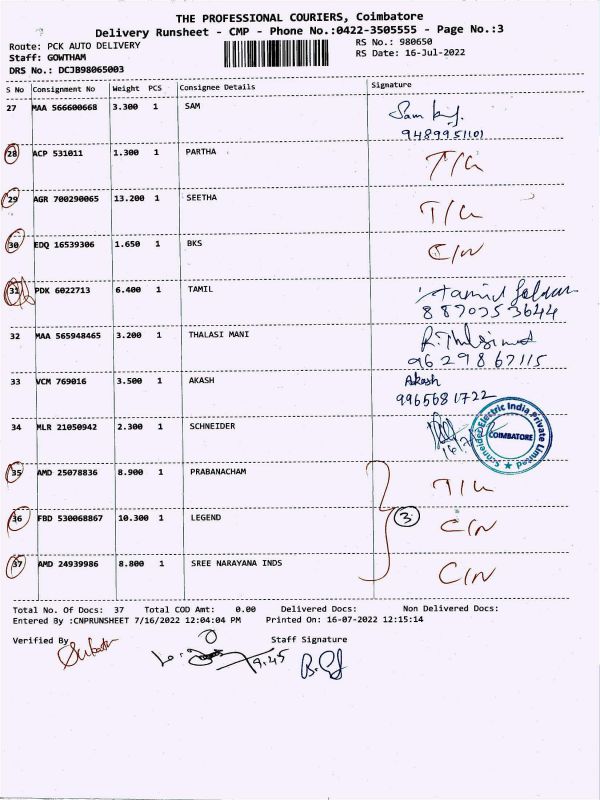 THE PROFESSIONAL COURIERS, Coimbatore
Delivery Runsheet - CMP - Phone No.:0422-3505555 - Page No.:3
Route: PCK AUTO DELIVERY RS No.: 980650
Staff: GOWTHAM RS Date: 16-Jul-2022
DRS No.: DCJB98065003
S No Consignment No Weight PCS Consignee Details Signature
27 MAA 566600668 3.300 1 SAM Sam
9489951101
28 ACP 531011 1.300 1 PARTHA T/C
29 AGR 700290065 13.200 1 SEETHA T/C
30 EDQ 16539306 1.650 1 BKS C/N
31 PDK 6022713 6.400 1 TAMIL
8870253644
32 MAA 565948465 3.200 1 THALASI MANI
9629867115
33 VCM 769016 3.500 1 AKASH Akash
9965681722
34 MLR 21050942 2.300 1 SCHNEIDER
Schneider Electric India Private Limited
COIMBATORE
35 AMD 25078836 8.900 1 PRABANACHAM T/C
36 FBD 530068867 10.300 1 LEGEND 3 C/N
37 AMD 24939986 8.800 1 SREE NARAYANA INDS C/N
Total No. Of Docs: 37 Total COD Amt: 0.00 Delivered Docs: Non Delivered Docs:
Entered By :CNPRUNSHEET 7/16/2022 12:04:04 PM Printed On: 16-07-2022 12:15:14
Verified By Staff Signature
9.45